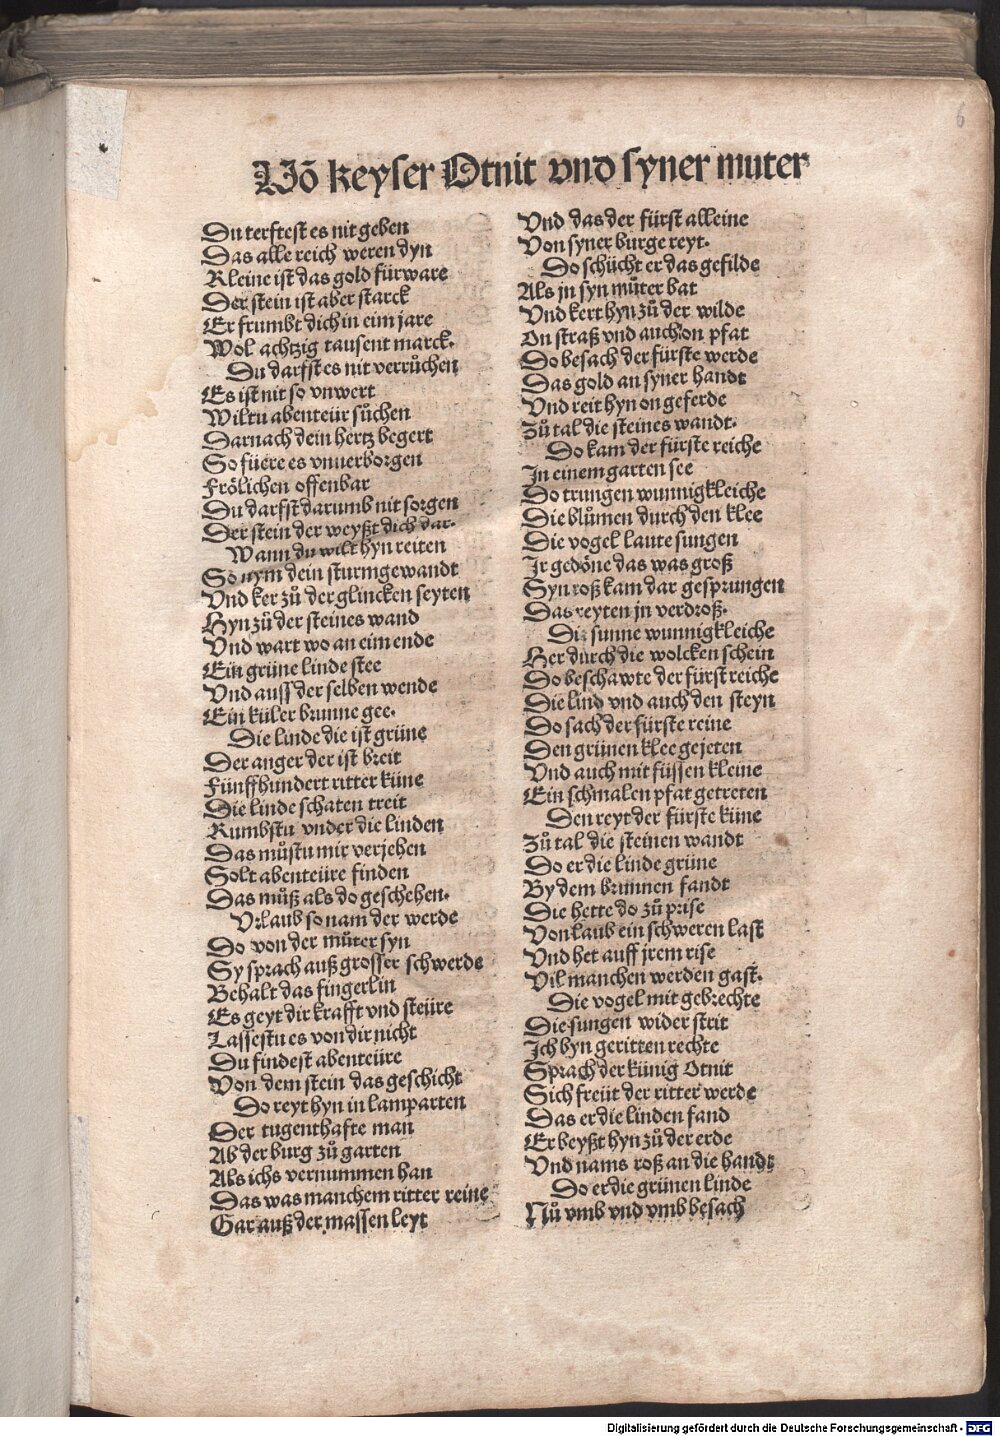 6
Võ keyser Otnit vnd syner muter
Du terftest es nit geben
Das alle reich weren dyn
Kleine ist das gold fürware
Der stein ist aber starck
Er frumbt dich in eim jare
Wol achtzig tausent marck.
Du darfst es nit verruͦchen
Es ist nit so vnwert
Wiltu abenteür suͦchen
Darnach dein hertz begert
So füere es vnuerborgen
Frölichen offenbar
Du darfst darumb nit sorgen
Der stein der weyßt dich dar.
Wann du wilt hyn reiten
So nym dein sturmgewandt
Vnd ker zuͦ der glincken seyten
Hyn zuͦ der steines wand
Vnd wart wo an eim ende
Ein grüne linde stee
Vnd auss der selben wende
Ein küler brunne gee.
Die linde die ist grüne
Der anger der ist breit
Fünffhundert ritter küne
Die linde schaten treit
Kumbstu vnder die linden
Das muͦstu mir verjehen
Solt abenteüre finden
Das muͦß als do geschehen.
Vrlaub so nam der werde
Do von der muͦter syn
Sy sprach auß grosser schwerde
Behalt das fingerlin
Es geyt dir krafft vnd steüre
Lassestu es von dir nicht
Du findest abenteüre
Von dem stein das geschicht
Do reyt hyn in lamparten
Der tugenthafte man
Ab der burg zuͦ garten
Als ichs vernummen han
Das was manchem ritter reine
Gar auß der massen leyt
Vnd das der fürst alleine
Von syner burge reyt.
Do schücht er das gefilde
Als jn syn muͦter bat
Vnd kert hyn zuͦ der wilde
On straß vnd auch on pfat
Do besach der fürste werde
Das gold an syner handt
Vnd reit hyn on geferde
Zuͦ tal die steines wandt.
Do kam der fürste reiche
In einem garten see
Do trungen wunnigkleiche
Die bluͦmen durch den klee
Die vogel laute sungen
Ir gedöne das was groß
Syn roß kam dar gesprungen
Das reyten jn verdroß.
Die sunne wunnigkleiche
Her durch die wolcken schein
Do beschawte der fürst reiche
Die lind vnd auch den steyn
Do sach der fürste reine
Den grünen klee gejeten
Vnd auch mit füssen kleine
Ein schmalen pfat getreten
Den reyt der fürste küne
Zuͦ tal die steinen wandt
Do er die linde grüne
By dem brunnen fandt
Die hette do zuͦ prise
Von laub ein schweren last
Vnd het auff jrem rise
Vil manchen werden gast.
Die vogel mit gebrechte
Die sungen wider strit
Ich byn geritten rechte
Sprach der künig Otnit
Sich freüt der ritter werde
Das er die linden fand
Er beyßt hyn zuͦ der erde
Vnd nams roß an die handt
Do er die grünen linde
Nuͦ vmb vnd vmb besach
Digitalisierung gefördert durch die Deutsche Forschungsgemeinschaft - DFG